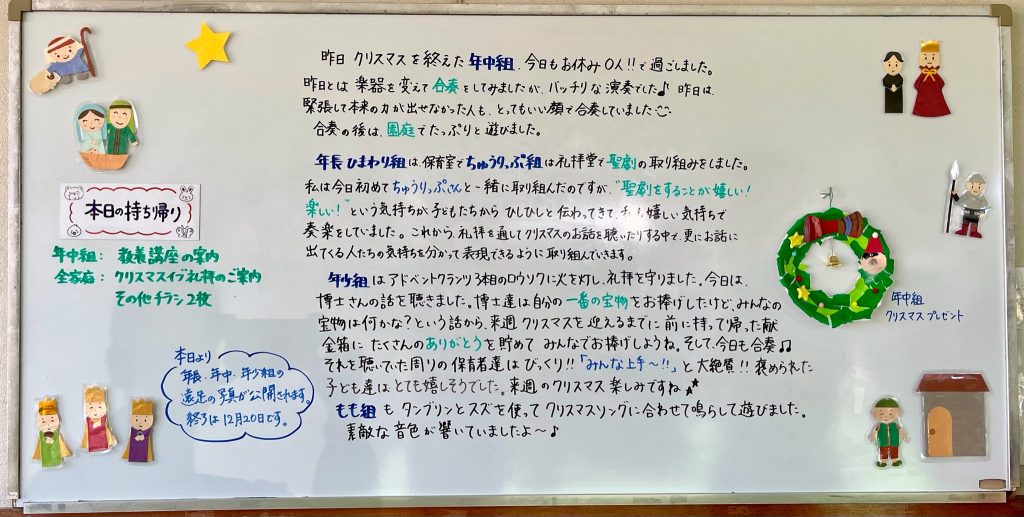 昨日 クリスマスを終えた年中組、今日もお休み0人!!で過ごしました。
昨日とは 楽器を変えて合奏をしてみましたが、バッチリな演奏でした♪ 昨日は、
緊張して本来の力が出せなかった人も、とってもいい顔で合奏していました
合奏の後は、園庭でたっぷりと遊びました。
年長ひまわり組は、保育室でちゅうりっぷ組は礼拝堂で聖劇の取り組みをしました。
私は今日初めてちゅうりっぷさんと一緒に取り組んだのですが、"聖劇をすることが嬉しい!
楽しい!"という気持ちが子どもたちから ひしひしと伝わってきて、私も嬉しい気持ちで
奏楽をしていました。これから、礼拝を通してクリスマスのお話を聴いたりする中で、更にお話に
出てくる人たちの気持ちを分かって表現できるように取り組んでいきます。
年少組は アドベントクランツ3本目のロウソクに火を灯し、礼拝を守りました。今日は、
博士さんの話を聴きました。博士達は自分の一番の宝物をお捧げしたけど、みんなの
宝物は何かな?という話から、来週 クリスマスを迎えるまでに 前に持って帰った献
金箱に たくさんのありがとうを貯めて みんなでお捧げしようね。そして、今日も合奏♫
それを聴いていた周りの保育者達は びっくり!!「みんな上手〜!!」と大絶賛!! 褒められた
子ども達は とても嬉しそうでした。来週のクリスマス 楽しみですね
もも組 も タンブリンとスズを使って クリスマスリングに合わせて鳴らして遊びました。
素敵な音色が響いていましたよ〜♪
本日の持ち帰り
年中組: 教養講座の案内
全家庭: クリスマスイブ礼拝のご案内
その他チラシ2枚
本日より
年長、年中、年少組の
遠足の写真が公開されます。
終了は12月20日です。
年中組
クリスマスプレゼント